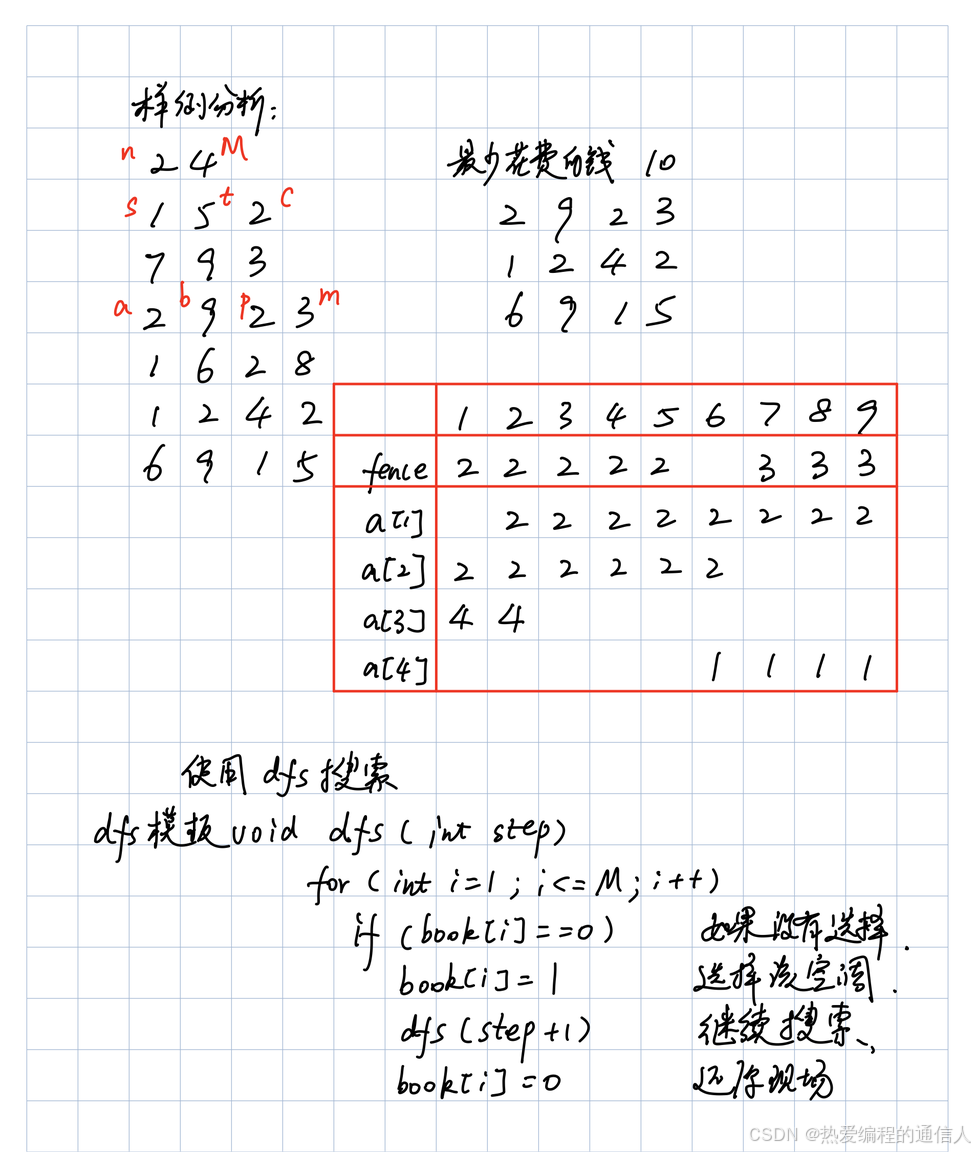 样例分析:
n 2 4 M
s 1 5 t 2 c
7 9 3
a 2 b 9 p 2 3 m
1 6 2 8
1 2 4 2
6 9 1 5
最少花费的钱 10
2 9 2 3
1 2 4 2
6 9 1 5
1 2 3 4 5 6 7 8 9
fence 2 2 2 2 2 3 3 3
a[1] 2 2 2 2 2 2 2 2
a[2] 2 2 2 2 2 2
a[3] 4 4
a[4] 1 1 1 1
使用 dfs 搜索
dfs模板 void dfs ( int step)
for ( int i=1 ; i<= M ; i++)
if (book[i]==0) 如果没有选择.
book[i]=1 选择该空调.
dfs (step+1) 继续搜索、,
book[i]=0 还原现场
CSDN @热爱编程的通信人